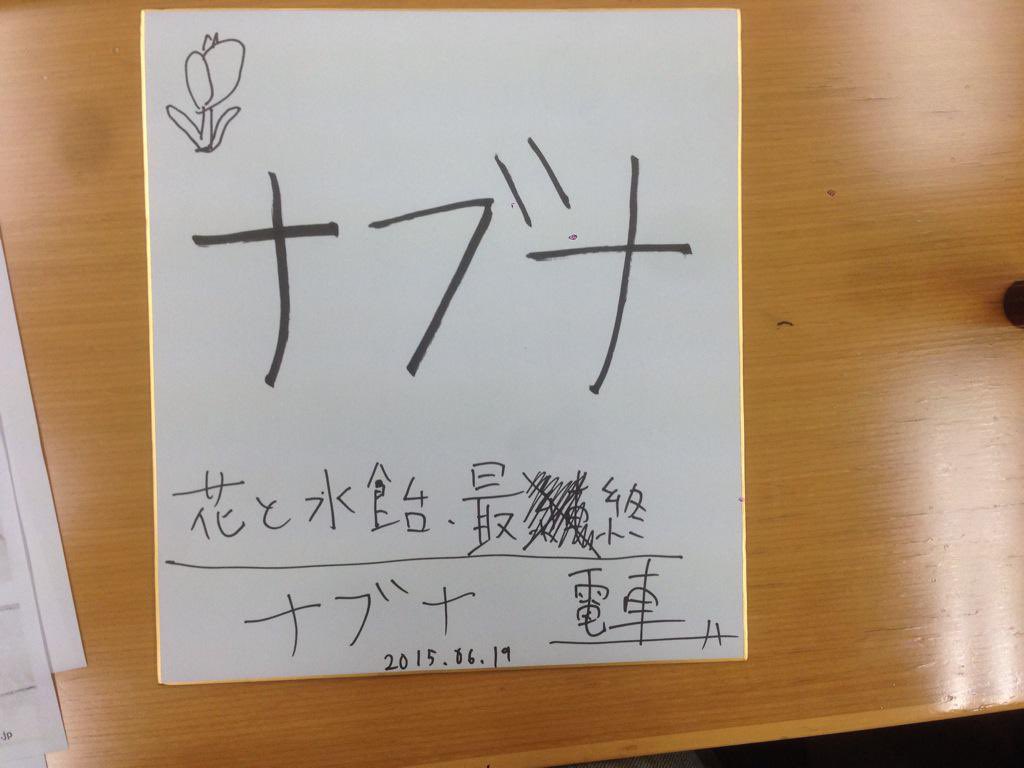 ナブナ
花と水飴、最終
電車
ナブナ
2015.06.19
.jp